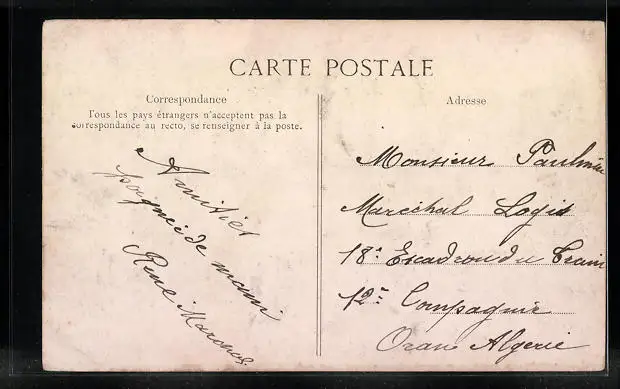 CARTE POSTALE
Correspondance
Tous les pays étrangers n'acceptent pas la
correspondance au recto, se renseigner à la poste.
Amitiés
poignée de main
René
Adresse
Monsieur
Maréchal Logis
18e Escadron du Train
12e Compagnie
Oran Algerie